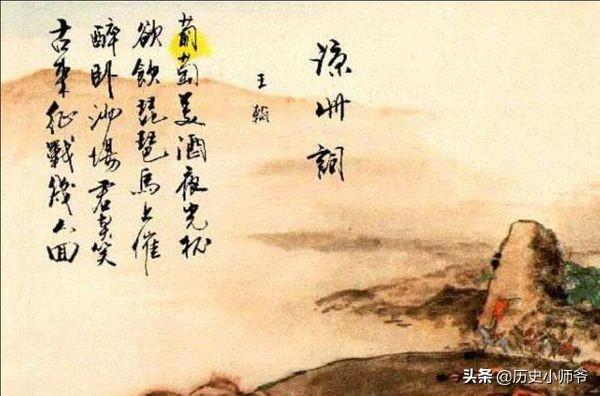 涼州詞
王翰
葡萄美酒夜光杯
欲飲琵琶馬上催
醉卧沙場君莫笑
古來征戰幾人回
头条 @历史小师爷